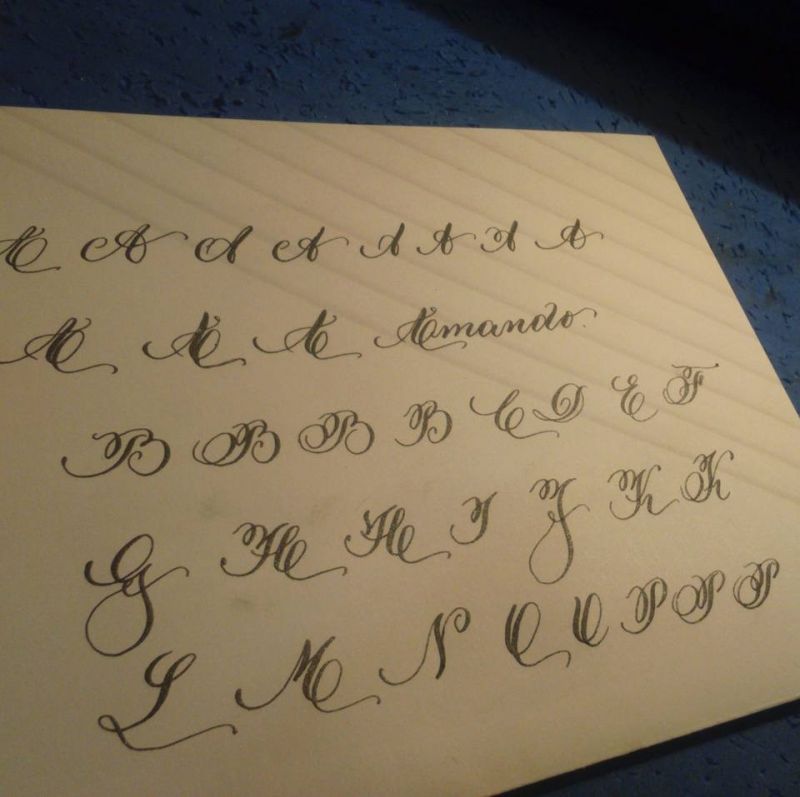 A A A A A A A A
A A A Amando.
B B B B C D E F
G H H I J K K
L M N O O P P P